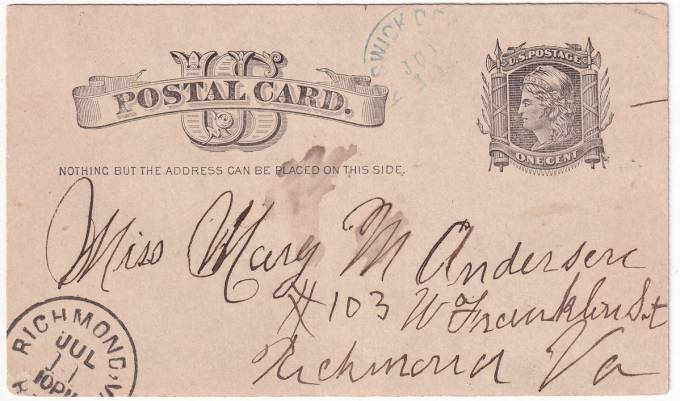 US
POSTAL CARD.
NOTHING BUT THE ADDRESS CAN BE PLACED ON THIS SIDE.
U.S. POSTAGE
ONE CENT
SWICK CO
JUL
Miss Mary M Anderson
#103 W Franklin St
Richmond Va
RICHMOND, V
JUL
11
10PM